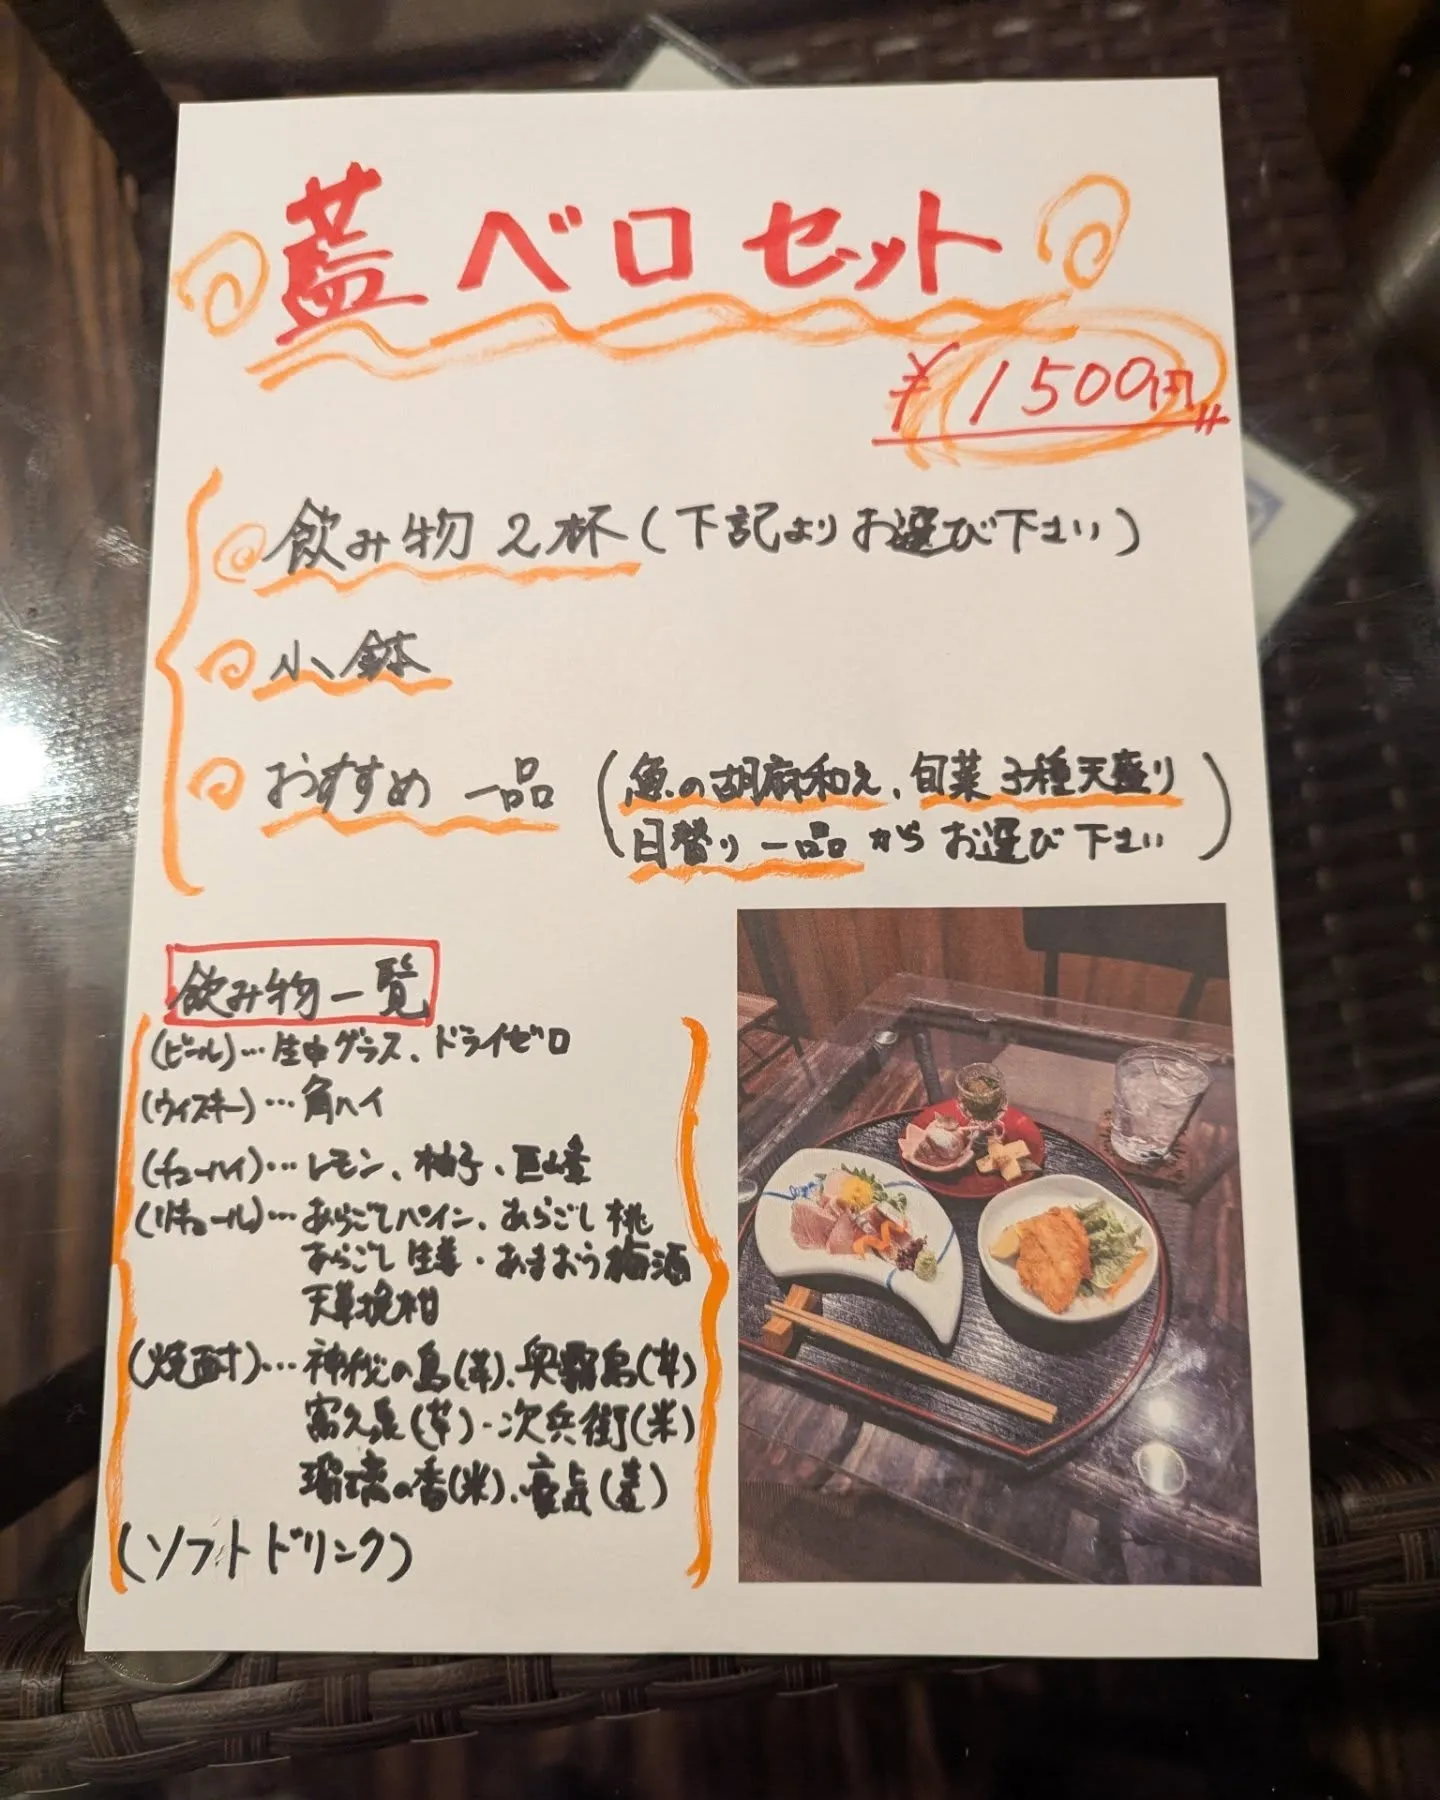 蓋ベロセット
¥1500円
飲み物2杯(下記よりお選び下さい)
小鉢
おすすめ一品(魚の胡麻和え、旬菜3種天盛り
日替り一品からお選び下さい)
飲み物一覧
(ビール)…生中グラス、ドライゼロ
(ウィスキー)…角ハイ
(チューハイ)…レモン、柚子、巨峰
(リキュール)…あらごしパイン、あらごし桃
あらごし生姜・あまおう梅酒
天草晩柑
(焼酎)…神秘の島(芋)、奥霧島(芋)
富久長(芋)・次兵衛(米)
瑠璃の香(米)、(麦)
(ソフトドリンク)